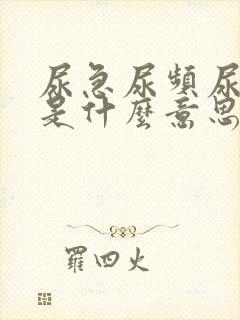 尿急尿頻尿
是什麼意思
羅四火